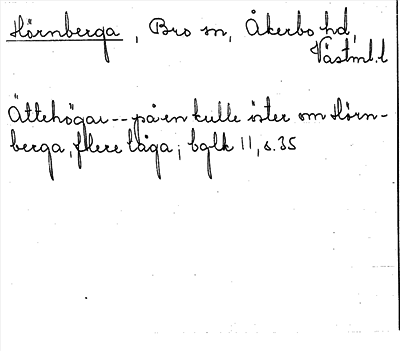 Hörnberga, Bro sn, Åkerbo hd,
Västml.l
Ättehögar -- på en kulle öster om Hörn-
berga, flere låga; bglk 11, s. 35